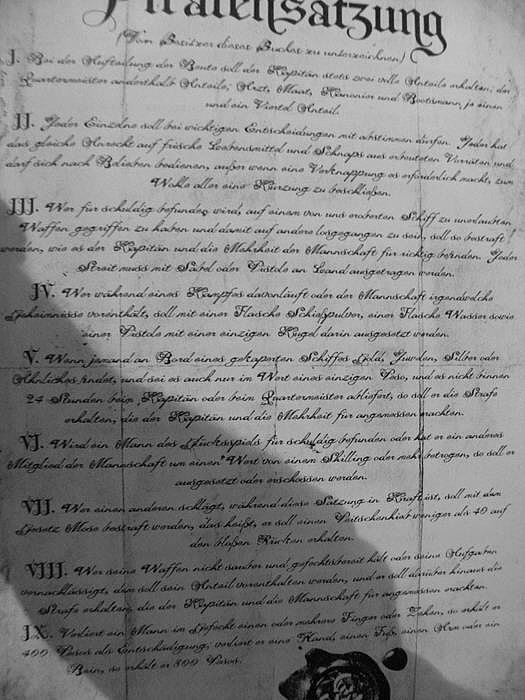 Piratensatzung
(Vom Besitzer dieses Buches zu unterzeichnen)
I. Bei der Aufteilung der Beute soll der Kapitän stets zwei volle Anteile erhalten; der
Quartermeister anderthalb Anteile; Arzt, Maat, Kanonier und Bootsmann je einen
und ein Viertel Anteil.
II. Jeder Einzelne soll bei wichtigen Entscheidungen mit abstimmen dürfen. Jeder hat
das gleiche Anrecht auf frische Lebensmittel und Schnaps aus erbeuteten Vorräten und
darf sich nach Belieben bedienen, außer wenn eine Verknappung es erforderlich macht, zum
Wohle aller eine Kürzung zu beschließen.
III. Wer für schuldig befunden wird, auf einem von uns eroberten Schiff zu unerlaubten
Waffen gegriffen zu haben und damit auf andere losgegangen zu sein, soll so bestraft
werden, wie es der Kapitän und die Mehrheit der Mannschaft für richtig befinden. Jeder
Streit muss mit Säbel oder Pistole an Land ausgetragen werden.
IV. Wer während eines Kampfes davonläuft oder der Mannschaft irgendwelche
Geheimnisse vorenthält, soll mit einer Flasche Schießpulver, einer Flasche Wasser sowie
einer Pistole mit einer einzigen Kugel darin ausgesetzt werden.
V. Wenn jemand an Bord eines gekaperten Schiffes Gold, Juwelen, Silber oder
Ähnliches findet, und sei es auch nur im Wert eines einzigen Peso, und es nicht binnen
24 Stunden beim Kapitän oder beim Quartermeister abliefert, so soll er die Strafe
erhalten, die der Kapitän und die Mehrheit für angemessen erachten.
VI. Wird ein Mann des Glücksspiels für schuldig befunden oder hat er ein anderes
Mitglied der Mannschaft um einen Wert von einem Shilling oder mehr betrogen, so soll er
ausgesetzt oder erschossen werden.
VII. Wer einen anderen schlägt, während diese Satzung in Kraft ist, soll mit dem
Gesetz Mose bestraft werden, das heißt, er soll einen Peitschenhieb weniger als 40 auf
den bloßen Rücken erhalten.
VIII. Wer seine Waffen nicht sauber und gefechtsbereit hält oder seine Aufgaben
vernachlässigt, dem soll sein Anteil vorenthalten werden, und er soll darüber hinaus die
Strafe erhalten, die der Kapitän und die Mannschaft für angemessen erachten.
IX. Verliert ein Mann im Gefecht einen oder mehrere Finger oder Zehen, so erhält er
400 Pesos als Entschädigung; verliert er eine Hand, einen Fuß, einen Arm oder ein
Bein, so erhält er 800 Pesos.